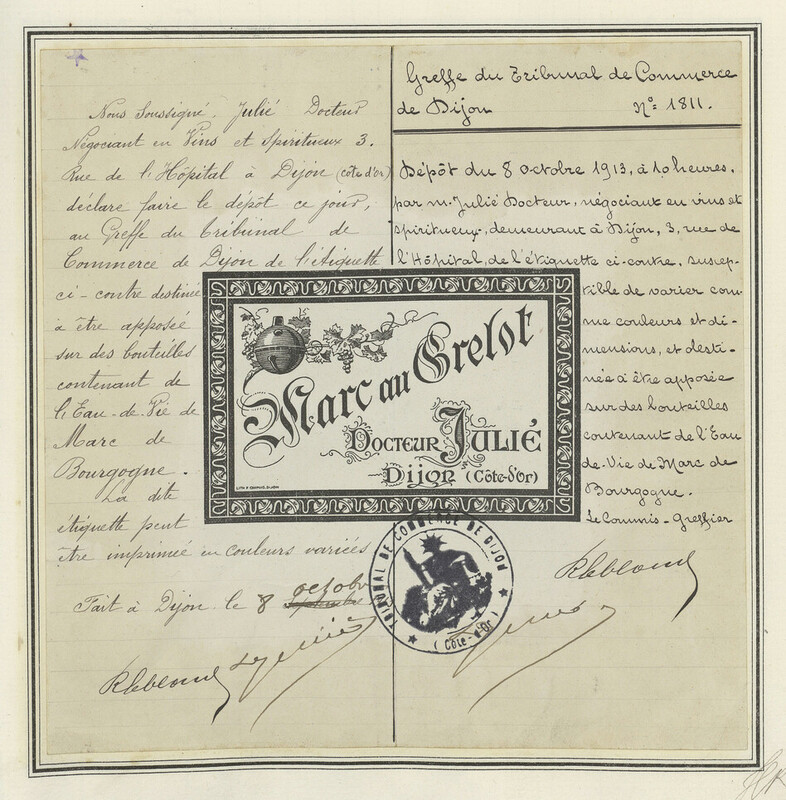 Nous Soussigné, Julié Docteur
Négociant en Vins et Spiritueux 3.
Rue de l'Hôpital à Dijon (côte d'or)
déclare faire le dépôt ce jour,
au Greffe du Tribunal de
Commerce de Dijon de l'étiquette
ci-contre destinée
à être apposée
sur des bouteilles
contenant de
l'Eau-de-Vie de
Marc de
Bourgogne.
La dite
étiquette peut
être imprimée en couleurs variées
Fait à Dijon le 8 octobre
Greffe du Tribunal de Commerce
de Dijon N° 1811.
Dépôt du 8 octobre 1913, à 10 heures,
par M. Julié Docteur, négociant en vins et
spiritueux, demeurant à Dijon, 3, rue de
l'Hôpital, de l'étiquette ci-contre, suscep-
tible de varier com-
me couleurs et di-
mensions, et desti-
née à être apposée
sur des bouteilles
contenant de l'Eau
de-Vie de Marc de
Bourgogne.
Le Commis-Greffier
Marc au Grelot
Docteur Julié
Dijon (Côte-d'Or)
TRIBUNAL DE COMMERCE DE DIJON
(Côte-d'Or)